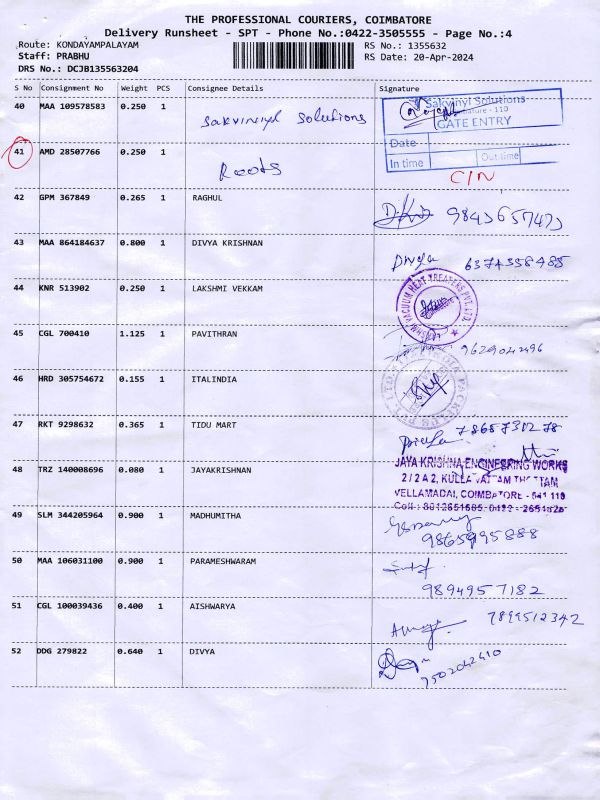 THE PROFESSIONAL COURIERS, COIMBATORE
Delivery Runsheet - SPT - Phone No.:0422-3505555 - Page No.:4
Route: KONDAYAMPALAYAM
Staff: PRABHU
DRS No.: DCJB135563204
RS No.: 1355632
RS Date: 20-Apr-2024
S No Consignment No Weight PCS Consignee Details Signature
40 MAA 109578583 0.250 1 Sakvinyl Solutions
Sakvinyl Solutions
- 110
GATE ENTRY
Date
In time Out time
41 AMD 28507766 0.250 1 Roots
C/N
42 GPM 367849 0.265 1 RAGHUL
43 MAA 864184637 0.800 1 DIVYA KRISHNAN Divya 6374358485
44 KNR 513902 0.250 1 LAKSHMI VEKKAM
VACUUM HEAT TREATERS PVT. LTD.
45 CGL 700410 1.125 1 PAVITHRAN 9629042496
46 HRD 305754672 0.155 1 ITALINDIA
47 RKT 9298632 0.365 1 TIDU MART
48 TRZ 140008696 0.080 1 JAYAKRISHNAN
JAYA KRISHNA ENGINEERING WORKS
2 / 2 A 2, KULLA
VELLAMADAI, COIMBATORE - 641 110
49 SLM 344205964 0.900 1 MADHUMITHA
9865995888
50 MAA 106031100 0.900 1 PARAMESHWARAM
9894957182
51 CGL 100039436 0.400 1 AISHWARYA 7899512342
52 DDG 279822 0.640 1 DIVYA
9502042410